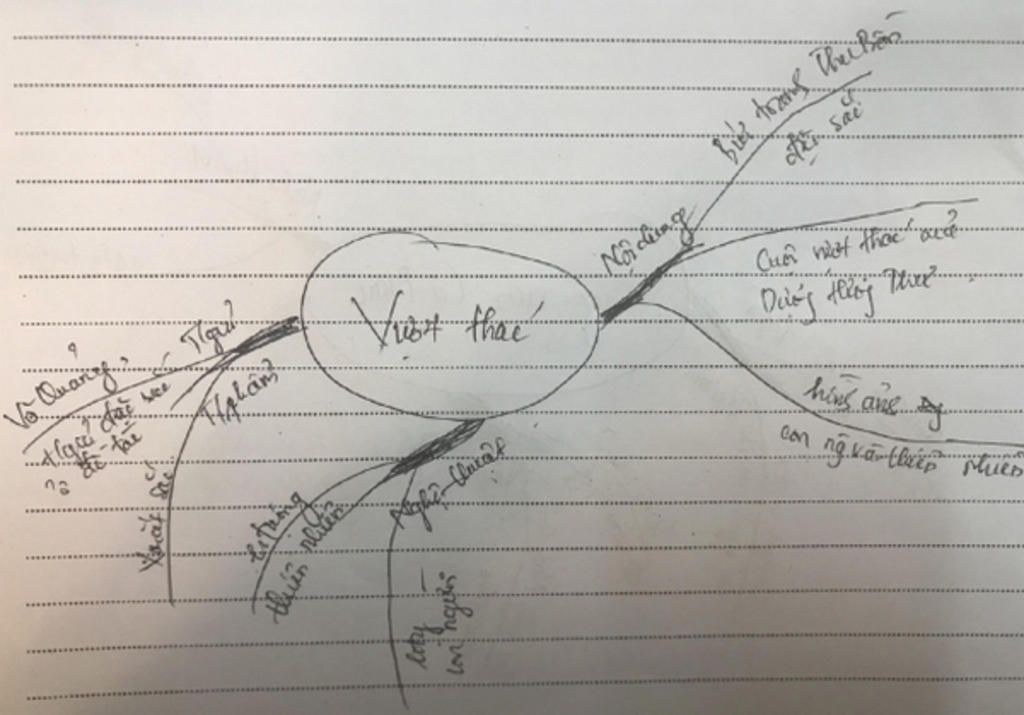 Vượt thác
Nội dung
Bức trang Thu Bồn
đặc sắc
Cuộc vượt thác của
Dượng Hương Thư
hình ảng
con ng và thiên nhiên
T/giả
Võ Quảng
T/giả đặc sắc
T/phẩm
Xuất sắc
Nghệ thuật
thiên nhiên
con người